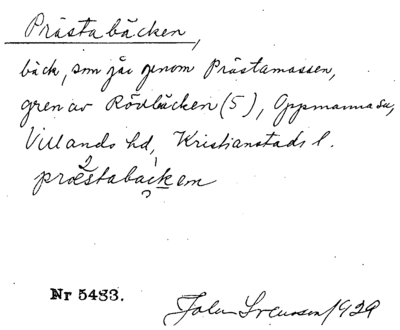 Prästabäcken,
bäck, som går genom Prästamossen,
gren av Rödbäcken (5), Oppmanna sn,
Villands hd, Kristianstads l.
præstabäckem
Nr 5483.
John Svensson 1929